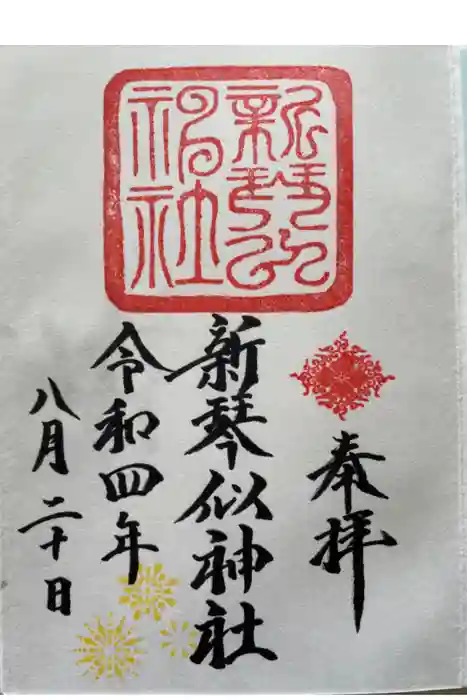 奉拝
新琴似神社
新琴似神社
令和四年
八月二十日